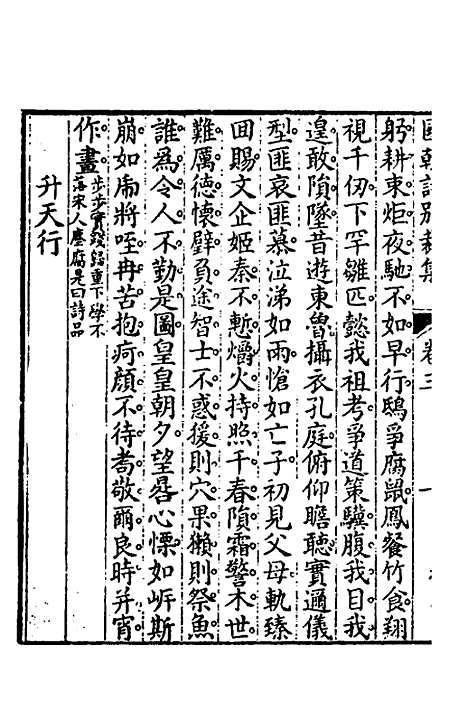 國朝詩別裁集 卷三
躬耕東炬夜馳不如早行鴟爭腐鼠鳳餐竹食翔
視千仞下罕雛匹懿我祖考爭道策驥腹我目我
遑敢隕墜昔遊東魯攝衣孔庭俯仰瞻聽實邇儀
型匪哀匪慕泣涕如雨愴如亡子初見父母軌臻
回賜文企姬秦不慙爝火持照千春隕霜警木世
難厲德懷壁負途智士不惑援則穴果獺則祭魚
誰為令人不勤是圖皇皇朝夕望晷心慄如岍斯
崩如虎將咥冉苦抱疴顔不待耇敬爾良時并宵
作晝
步步實發語重下學不
落宋人塵腐是曰詩品
升天行